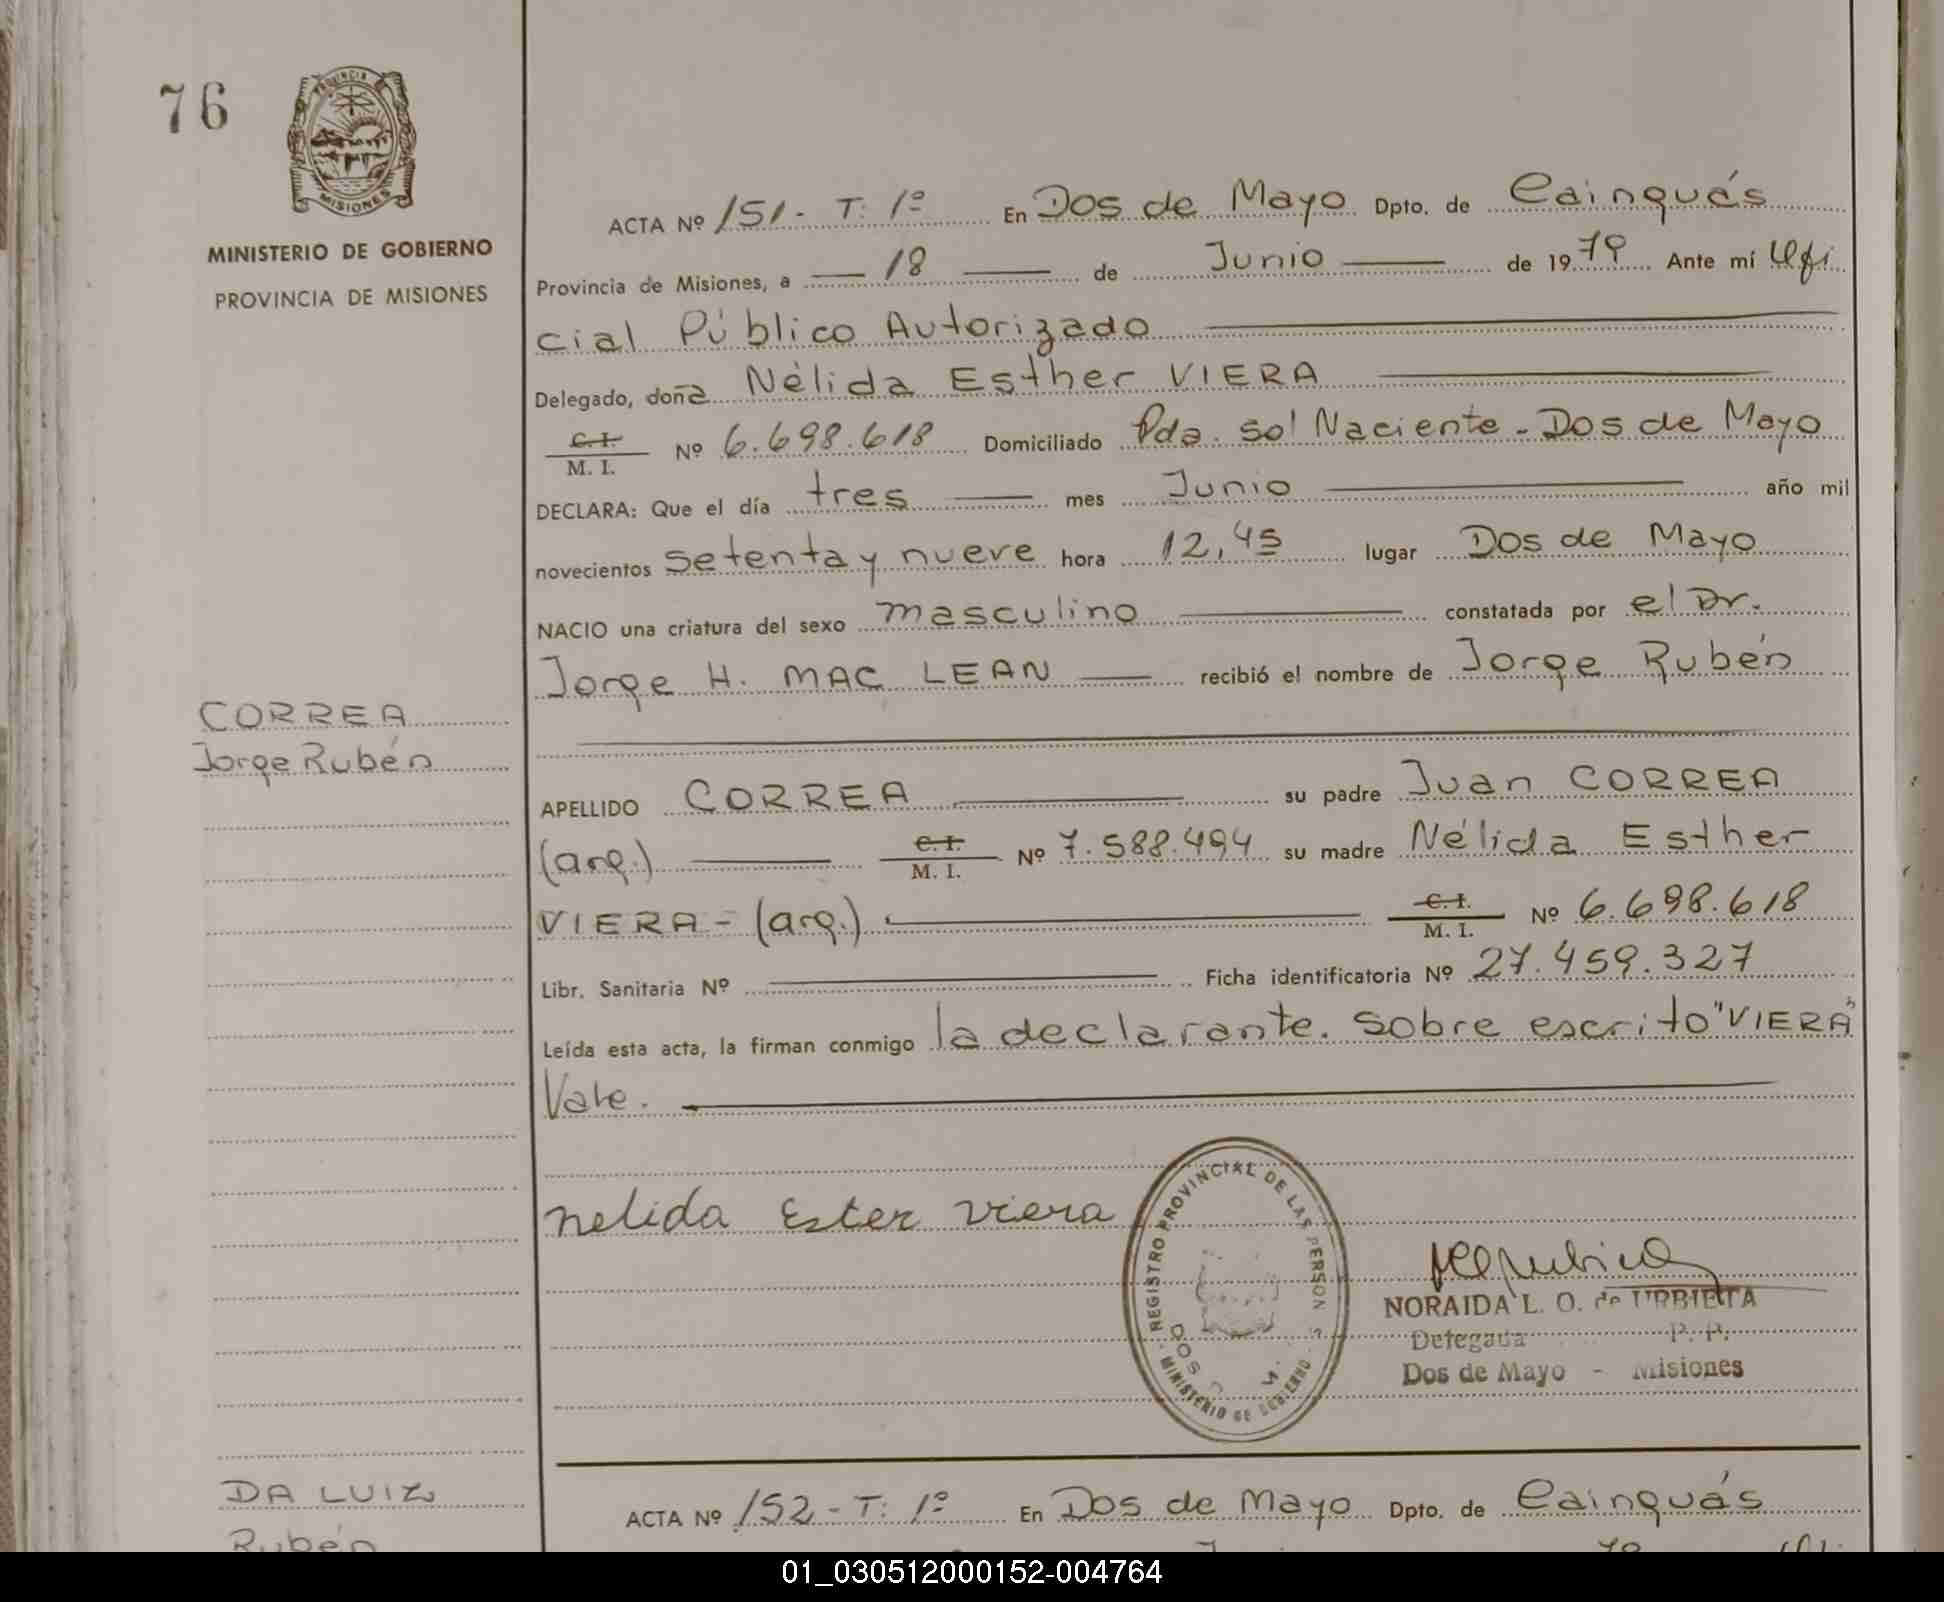 76
PROVINCIA
MISIONES
MINISTERIO DE GOBIERNO
PROVINCIA DE MISIONES
ACTA Nº 151- T: 1º En Dos de Mayo Dpto. de Cainguás
Provincia de Misiones, a 18 de Junio de 1979 Ante mí Ofi
cial Público Autorizado
Delegado, doña Nélida Esther VIERA
C. I.
M. I. Nº 6.698.618 Domiciliado Pda. sol Naciente - Dos de Mayo
DECLARA: Que el día tres mes Junio año mil
novecientos setenta y nueve hora 12,45 lugar Dos de Mayo
NACIO una criatura del sexo masculino constatada por el Dr.
Jorge H. MAC LEAN recibió el nombre de Jorge Rubén
CORREA
Jorge Rubén
APELLIDO CORREA su padre Juan CORREA
(arg.) C. I. M. I. Nº 7.588.494 su madre Nélida Esther
VIERA - (arg.) C. I. M. I. Nº 6.698.618
Libr. Sanitaria Nº Ficha identificatoria Nº 27.459.327
Leída esta acta, la firman conmigo la declarante. Sobre escrito "VIERA"
Vale.
nelida Ester viera
REGISTRO PROVINCIAL DE LAS PERSON S
DOS
MINISTERIO DE GOBIERNO
NORAIDA L. O. de URBIETA
Delegada P. P.
Dos de Mayo - Misiones
DA LUIZ
Rubén
ACTA Nº 152 - T: 1º En Dos de Mayo Dpto. de Cainguás
01_030512000152-004764